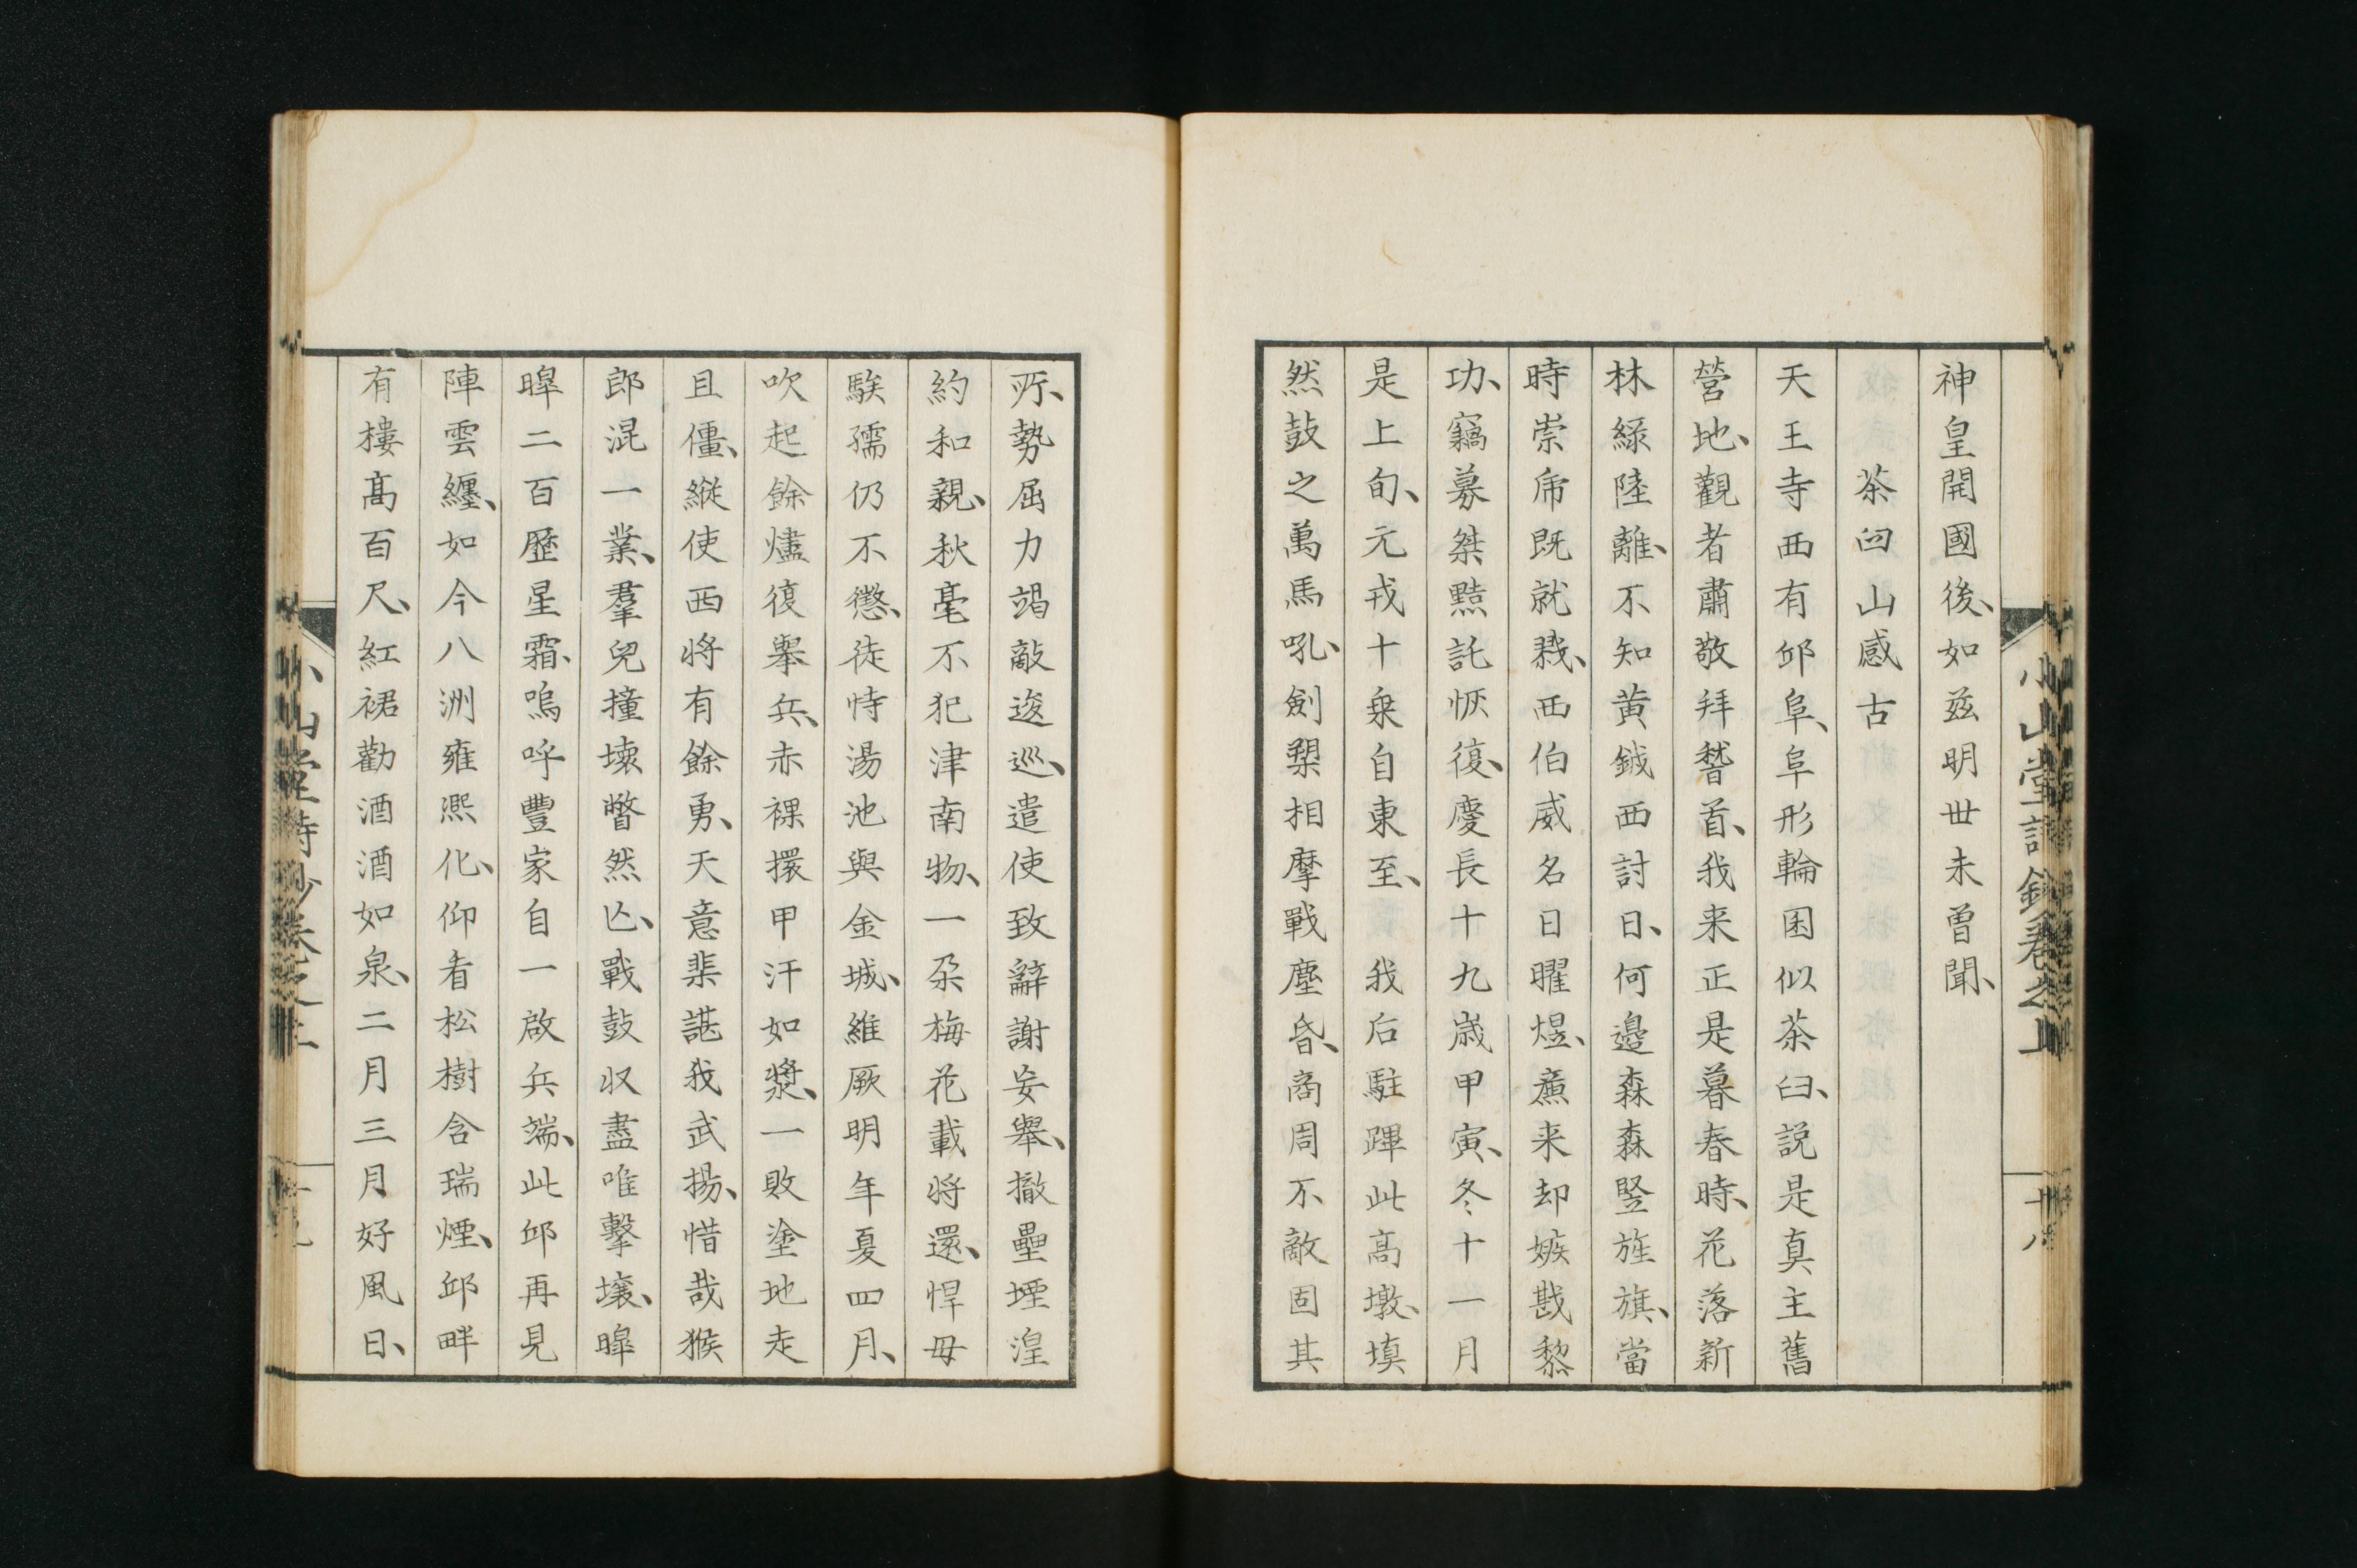 神皇開國後、如茲明世未曾聞、
茶臼山感古
天王寺西有邱阜、阜形輪囷似茶臼、説是真主舊
營地、觀者肅敬拜稽首、我来正是暮春時、花落新
林綠陸離、不知黄鉞西討日、何邊森森竪旌旗、當
時崇庸既就戮、西伯威名日曜煜、薦来却嫉戡黎
功、竊募桀黠託恢復、慶長十九歳甲寅、冬十一月
是上旬、元戎十乗自東至、我后駐蹕此高墩、填
然鼓之萬馬吼、劍槊相摩戰塵昏、商周不敵固其
所、勢屈力竭敵逡巡、遣使致辭謝妄舉、撤壘堙湟
約和親、秋毫不犯津南物、一朶梅花載将還、悍毋
騃孺仍不懲、徒恃湯池與金城、維厥明年夏四月、
吹起餘燼復擧兵、赤裸擐甲汗如漿、一敗塗地走
且僵、縱使西将有餘勇、天意棐諶我武揚、惜哉猴
郎混一業、羣兒撞壊瞥然亾、戰鼓収盡唯擊壌、皞
皞二百歷星霜、嗚呼豐家自一啟兵端、此邱再見
陣雲纏、如今八洲雍熙化、仰看松樹含瑞煙、邱畔
有樓髙百尺、紅裙勸酒酒如泉、二月三月好風日、
小山堂詩鈔卷之上
十八